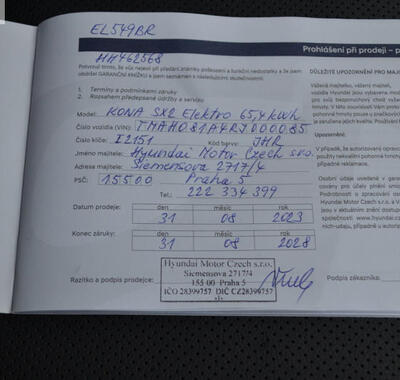 EL549BR
HH462568
Prohlášení při prodeji – p
Potvrzuji tímto, že vůz nejeví při předání známky poškození a funkční nedostatky a že jsem
obdržel GARANČNÍ KNÍŽKU a jsem seznámen s následujícími skutečnostmi:
1. Termíny a podmínkami záruky
2. Rozsahem předepsané údržby a servisu
Model: KONA SX2 Elektro 65,4 kWh
Číslo vozidla (VIN): TMAH081A4RJ000085
Číslo klíče: I2151 Kód barvy: JHR
Jméno majitele: Hyundai Motor Czech s.r.o.
Adresa majitele: Siemensova 2717/4
PSČ: 15500 Praha 5
Tel.: 222 334 399
Datum prodeje: den měsíc rok
31 08 2023
Konec záruky: den měsíc rok
31 08 2028
Hyundai Motor Czech s.r.o.
Siemensova 2717/4
155 00 Praha 5
IČO 28399757 DIČ CZ28399757
Razítko a podpis prodejce:
DŮLEŽITÉ UPOZORNĚNÍ PRO MAJ
Vážená majitelko, vážený majiteli,
vozidla Hyundai jsou vybavena mode
pro svůj bezporuchový chod
v létě. V této souvislosti Vám proto
pohonné hmoty pouze u značkových
za zaručena jejich kvalita. Používání
Upozornění:
V případě, že autorizovaný opravce
použity nekvalitní pohonné hmoty
případné reklamace.
Osobní údaje uvedené v garan
covány pro účely plnění smlou
Podrobnosti o zpracování oso
Hyundai Motor Czech s.r.o. a V
jsou v aktuálním znění dostup
společnosti www.hyundai.cz
ních-udaju, případně u autoriz
Podpis zákazníka: